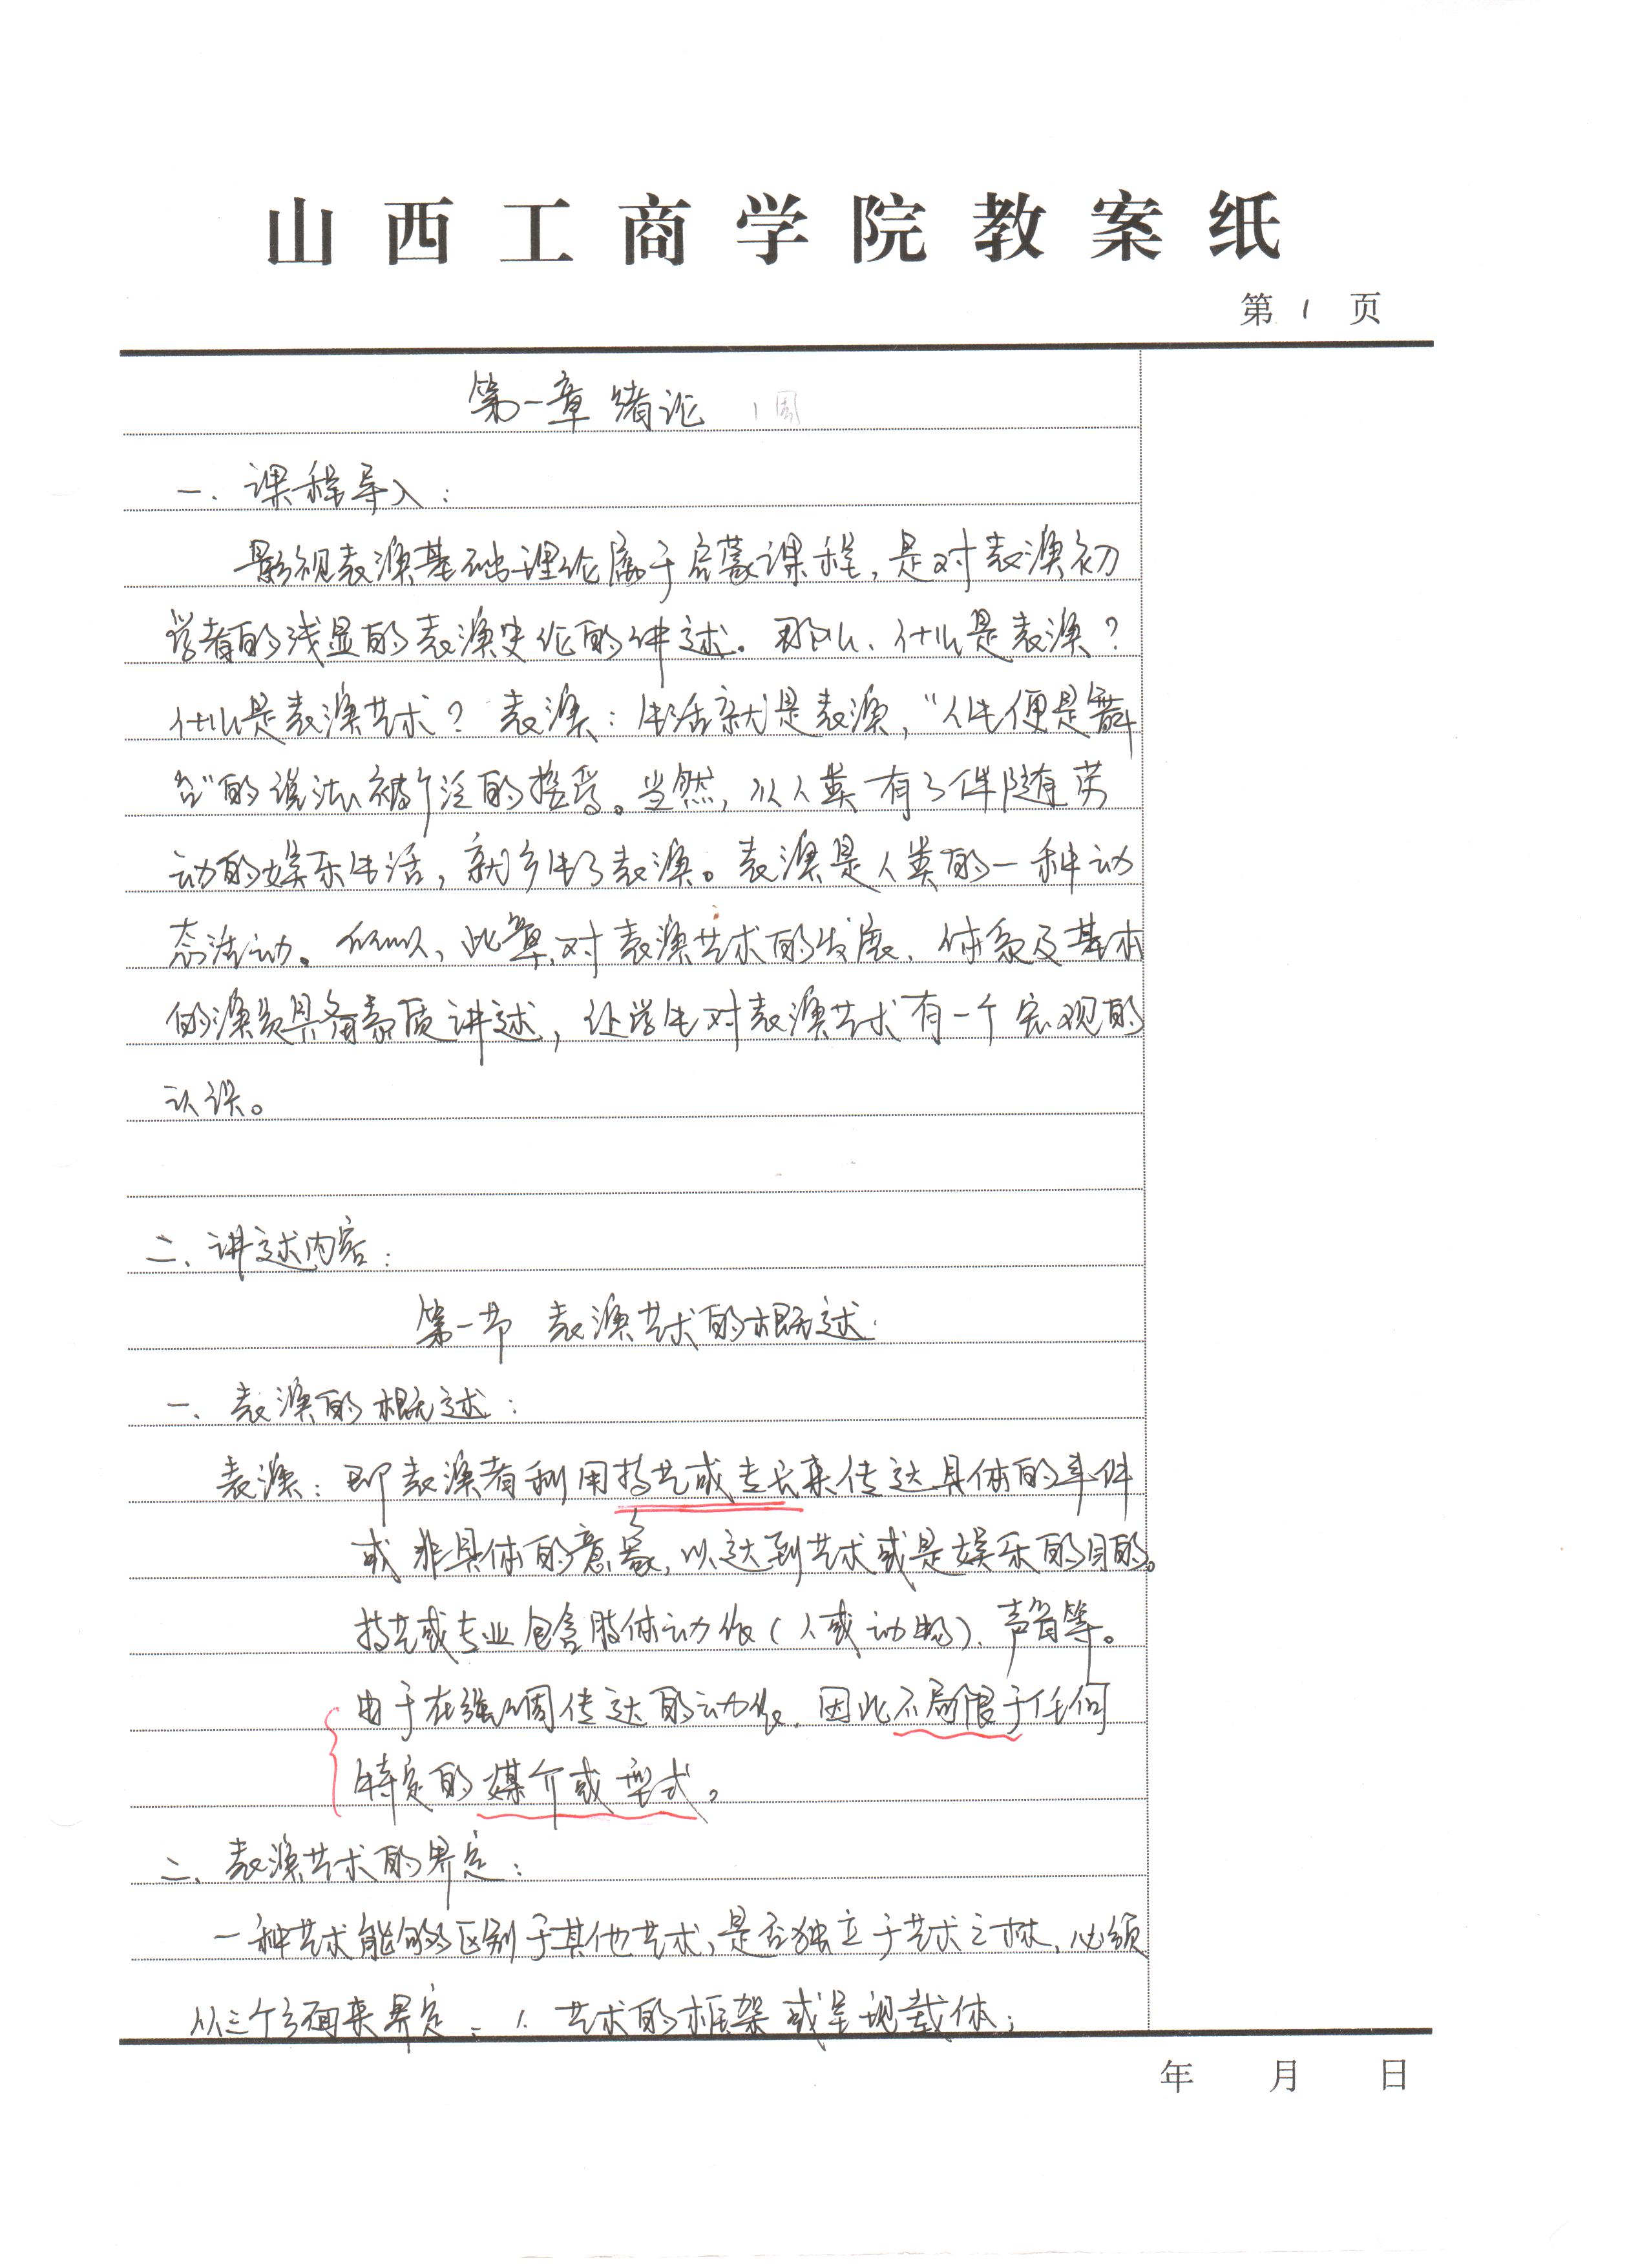 山西工商学院教案纸
第 1 页
第一章 绪论 1周
一、课程导入：
影视表演基础理论属于启蒙课程，是对表演初
学者的浅显的表演史论的讲述。那么、什么是表演？
什么是表演艺术？表演：生活就是表演，"人生便是舞
台"的说法被广泛的推崇。当然，从人类有了伴随劳
动的娱乐生活，就产生了表演。表演是人类的一种动
态活动。所以，此章，对表演艺术的发展、体系及基本
的演员具备素质讲述，让学生对表演艺术有一个宏观的
认识。
二、讲述内容：
第一节 表演艺术的概述
一、表演的概述：
表演：即表演者利用技艺或专长来传达具体的事件
或非具体的意象，以达到艺术或是娱乐的目的。
技艺或专业包含肢体动作（人或动物）、声音等。
由于在强调传达的动作，因此不局限于任何
特定的媒介或型式。
二、表演艺术的界定：
一种艺术能够区别于其他艺术，是否独立于艺术之林，必须
从三个方面来界定：1、艺术的框架或呈现载体；
年 月 日